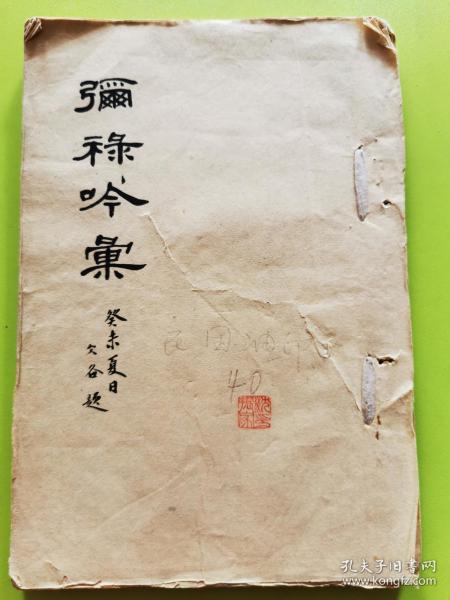 彌祿吟彙
癸未夏日
欠谷題
民国油印
40
孔夫子旧书网
www.kongfz.com